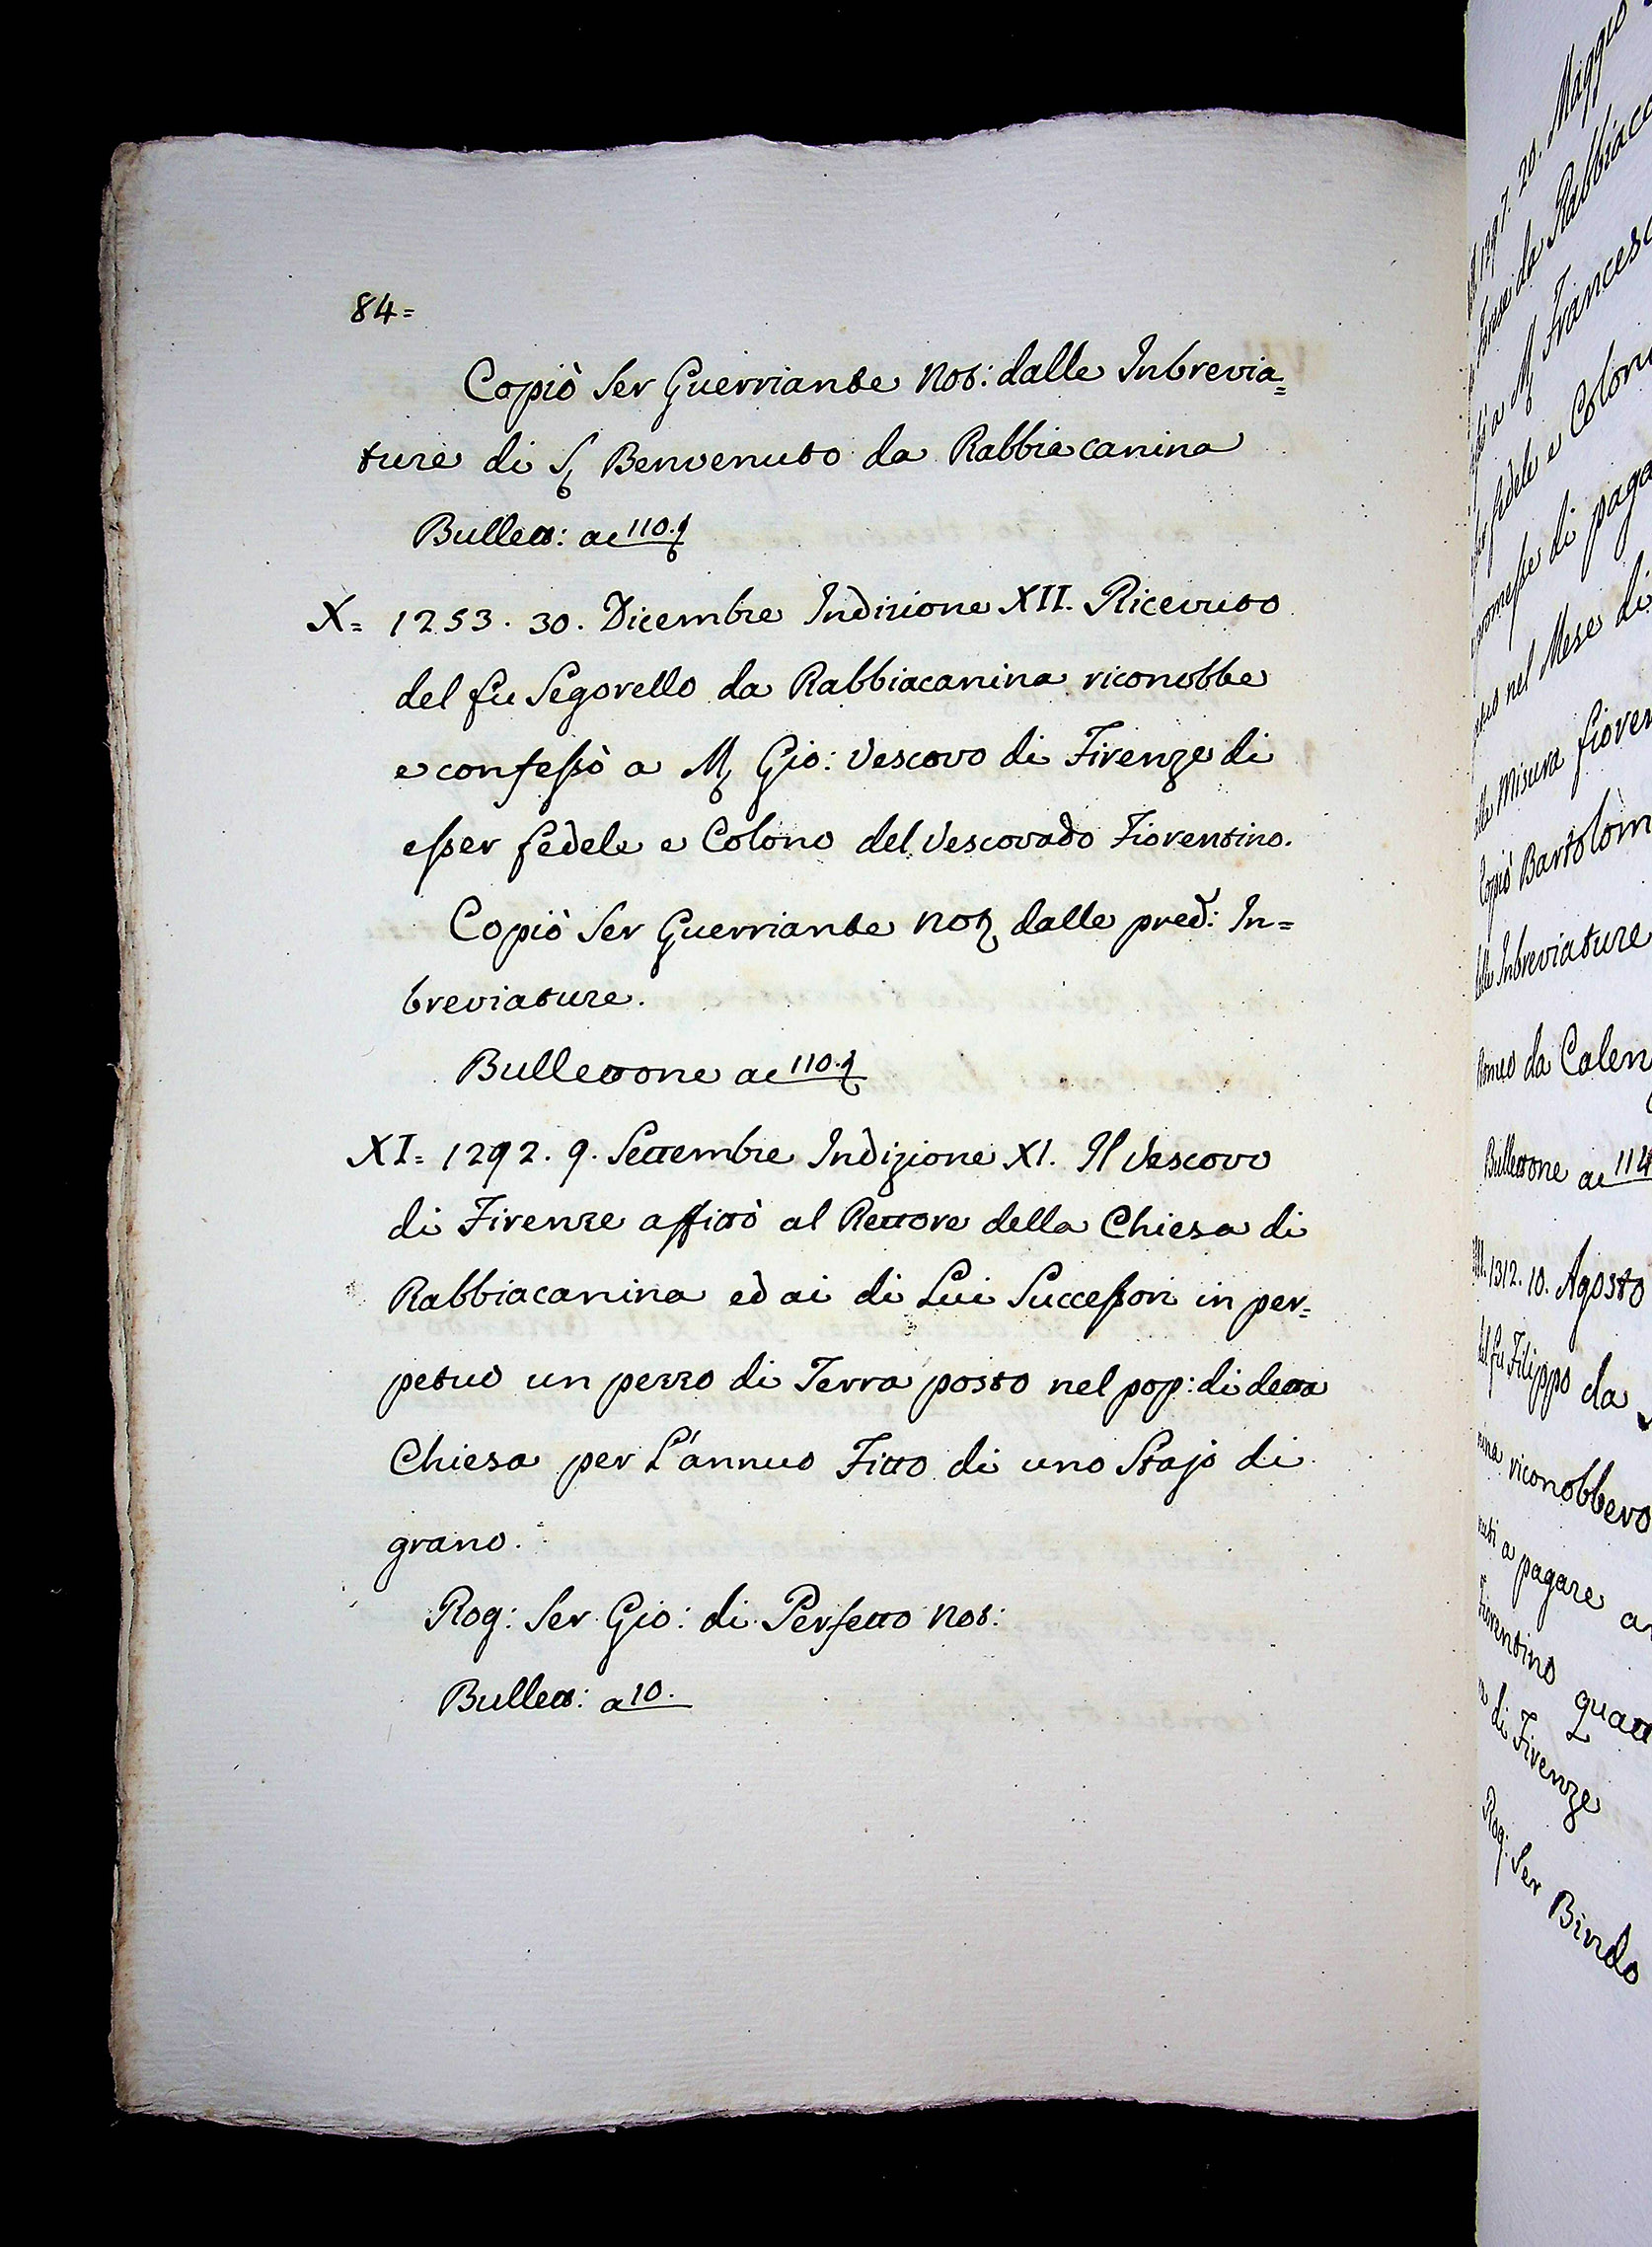 84=
Copiò Ser Guerriante Not: dalle Inbrevia=
ture di S. Benvenuto da Rabbiacanina
Bullett: ac 110.
X= 1253. 30. Dicembre Indizione XII. Ricevuto
del fu Segorello da Rabbiacanina riconobbe
e confessò a M. Gio: Vescovo di Firenze di
esser fedele e Colono del Vescovado Fiorentino.
Copiò Ser Guerriante Not. dalle pred: In=
breviature.
Bullettone ac 110.
XI= 1292. 9. Settembre Indizione XI. Il Vescovo
di Firenze affittò al Rettore della Chiesa di
Rabbiacanina ed ai di Lui Successori in per=
petuo un pezzo di Terra posto nel pop: di detta
Chiesa per L'annuo Fitto di uno Stajo di
grano.
Rog: Ser Gio: di Perfetto Not:
Bullett: a 10.
1297. 20. Maggio
da Rabbiaca
a M. Francesc
fedele e Colon
di paga
nel Mese di
Misura fioren
Copiò Bartolom
dalle Inbreviature
Romeo da Calen
Bullettone ac 114
1312. 10. Agosto
del fu Filippo da
riconobbero
a pagare an
Fiorentino quatt
di Firenze
Rog: Ser Bindo